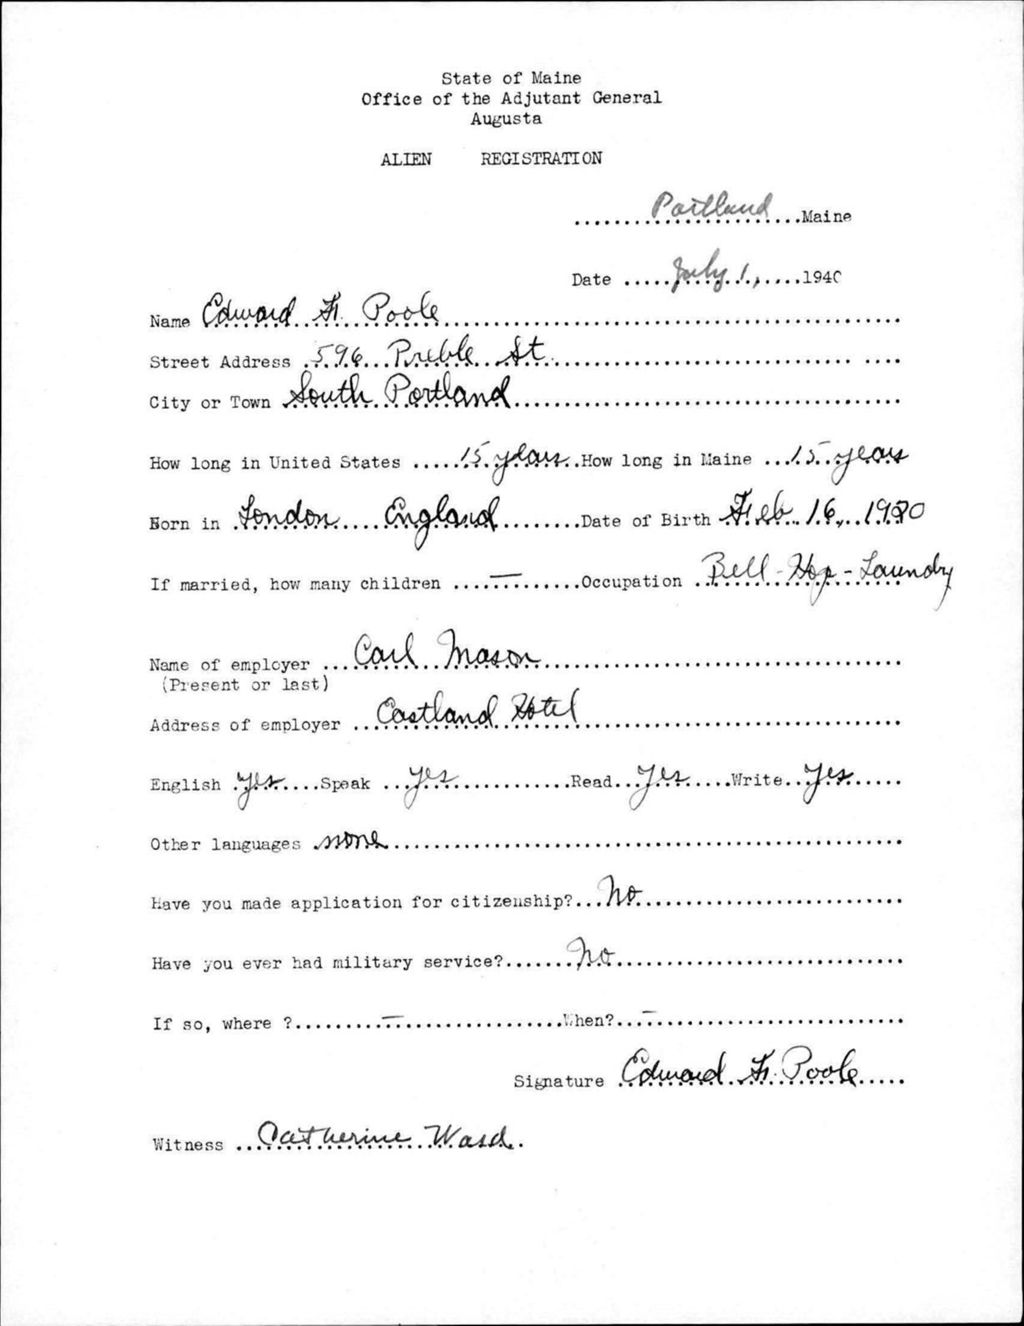 State of Maine
Office of the Adjutant General
Augusta
ALIEN REGISTRATION
Portland Maine
Date July 1, 1940
Name Edward F. Poole
Street Address 596 Preble St.
City or Town South Portland
How long in United States 15 years How long in Maine 15 years
Born in London England Date of Birth Feb. 16, 1920
If married, how many children — Occupation Bell-Hop-Laundry
Name of employer Carl Mason
(Present or last)
Address of employer Eastland Hotel
English yes Speak yes Read Yes Write Yes
Other languages none
Have you made application for citizenship? No
Have you ever had military service? No
If so, where ? — When? —
Signature Edward F. Poole
Witness Catherine Ward.